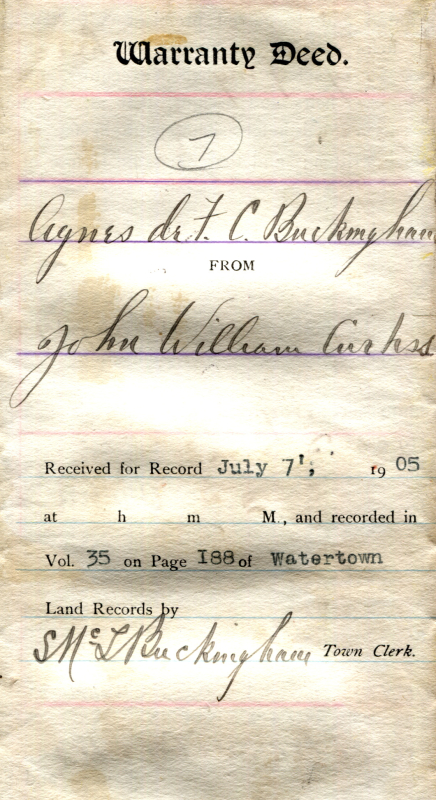 Warranty Deed.
7
Agnes de F. C. Buckingham
FROM
John William Curtiss
Received for Record July 7', 1905
at h m M., and recorded in
Vol. 35 on Page I88 of Watertown
Land Records by
S McL Buckingham Town Clerk.